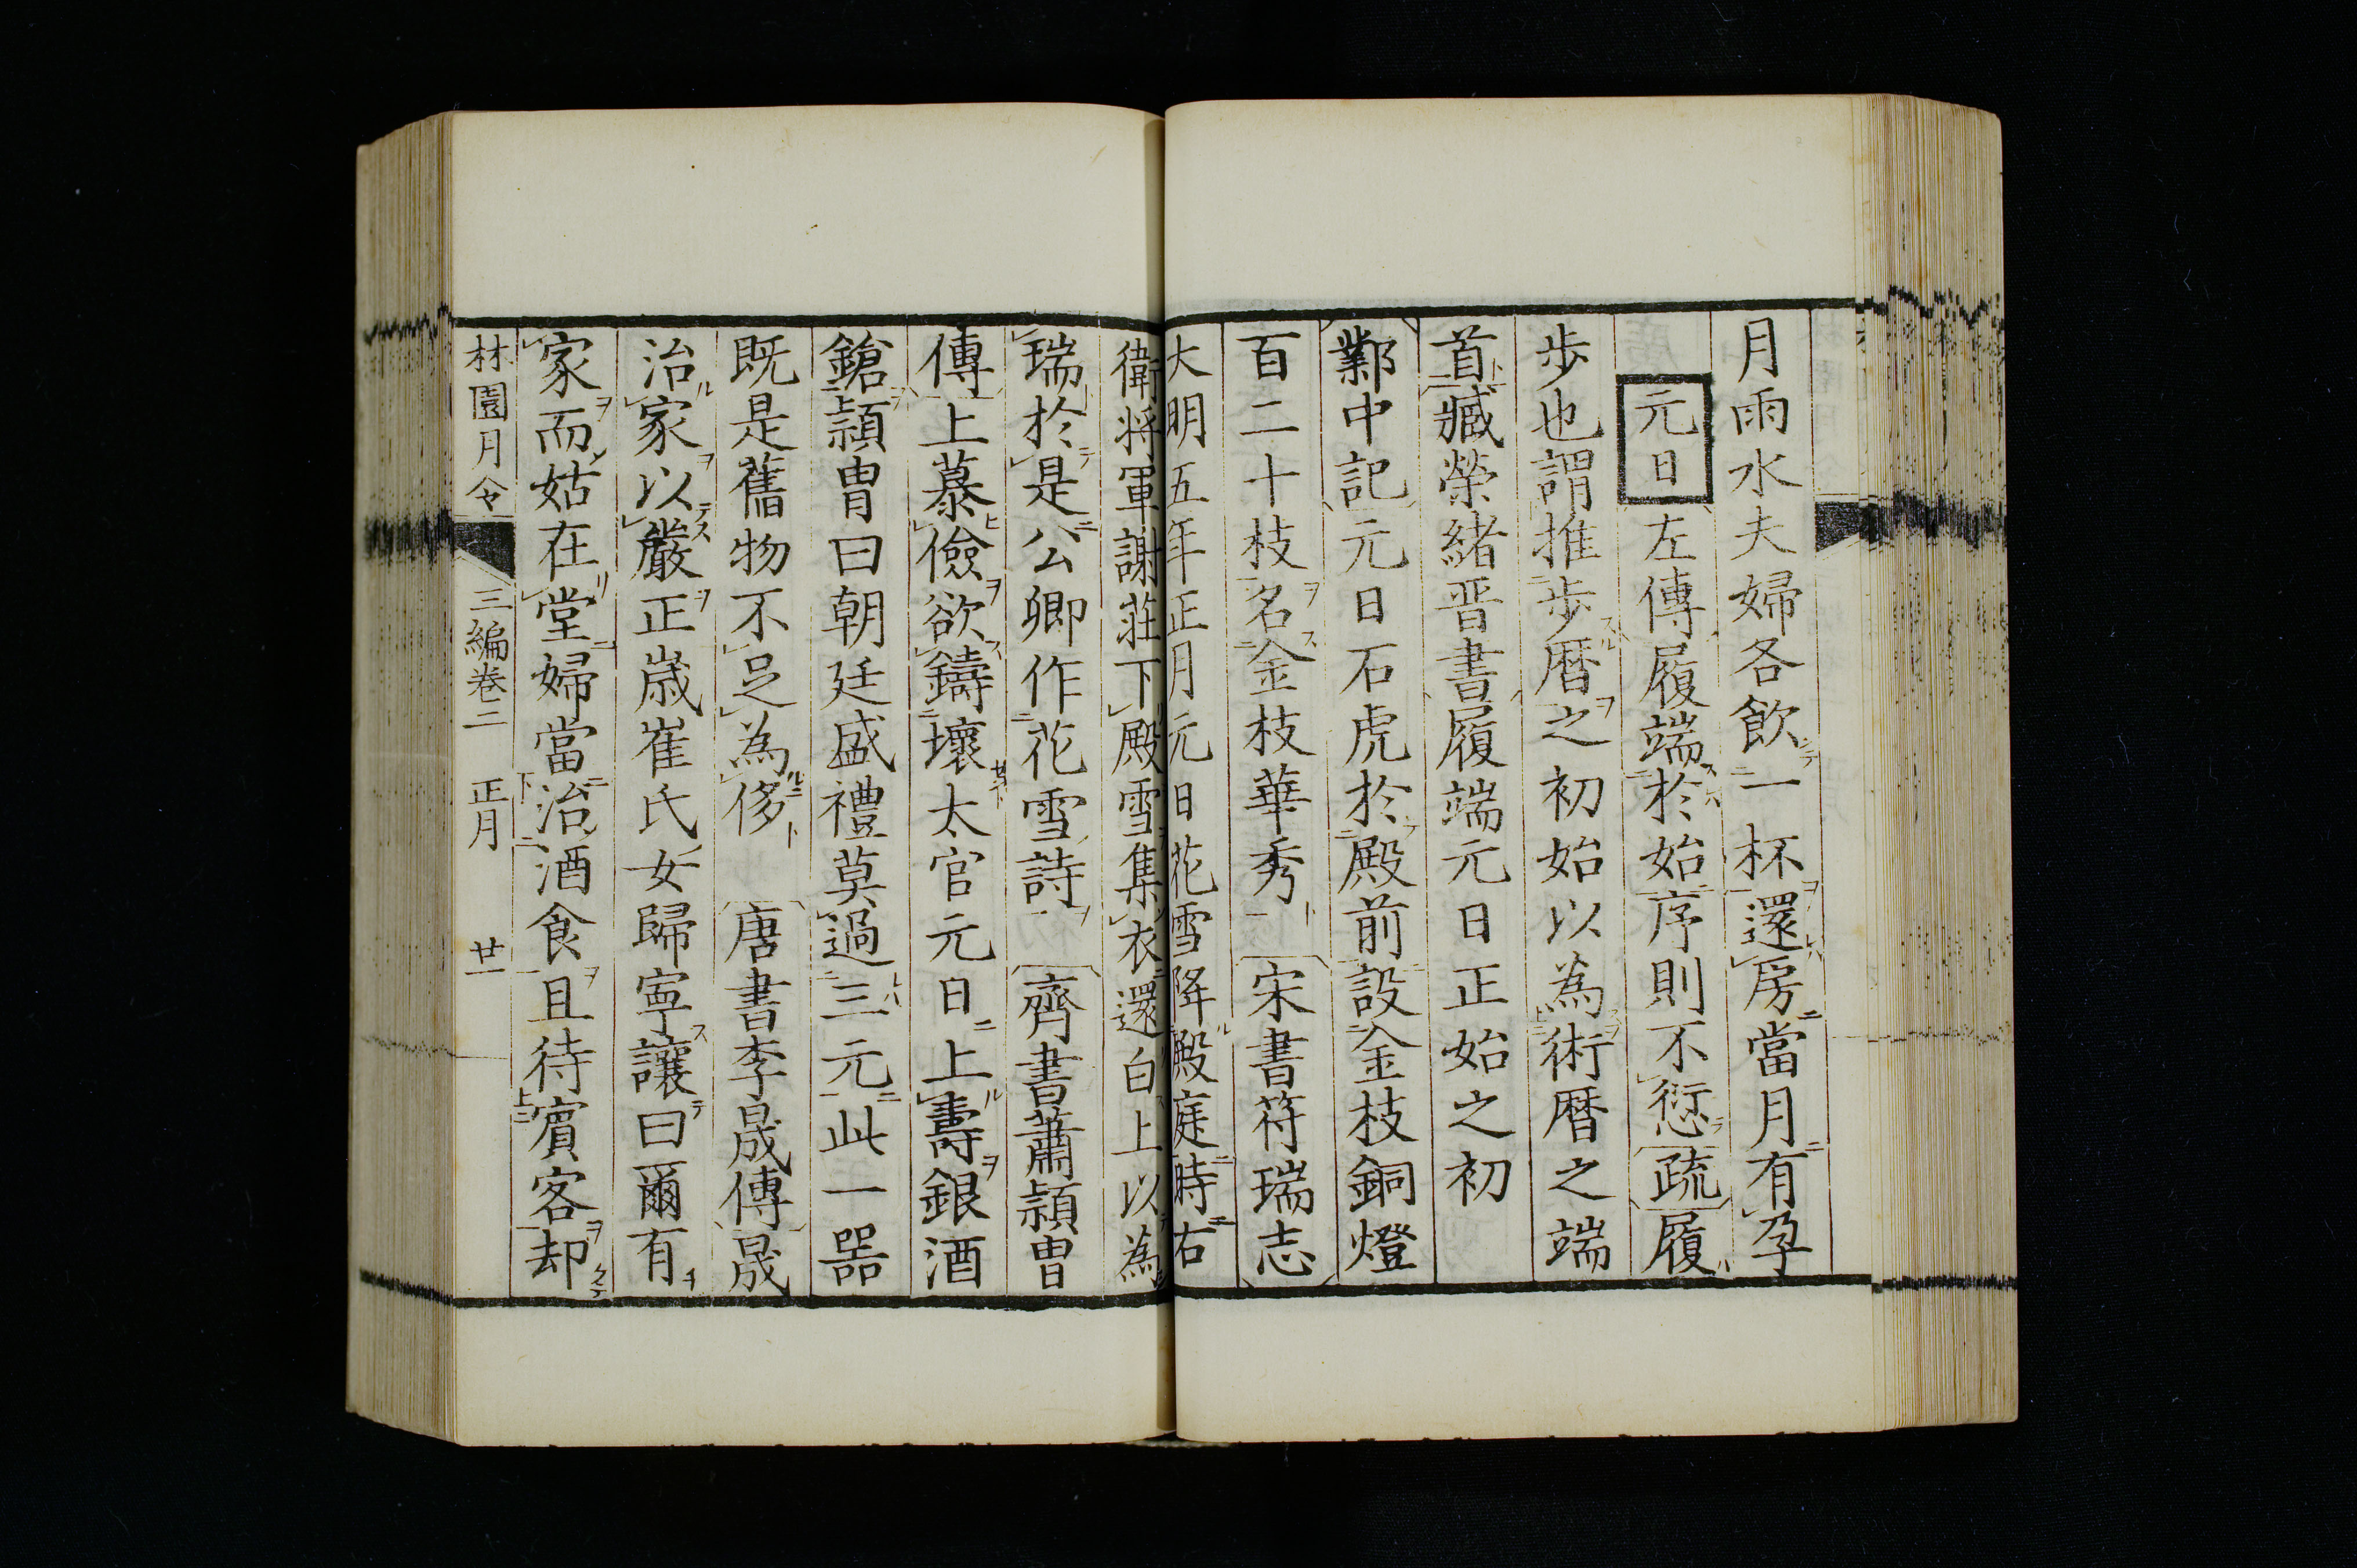 月雨水夫婦各飲一杯還房當月有孕
元日左傳履端於始序則不愆疏履
步也謂推步暦之初始以為術暦之端
首臧榮緒晋書履端元日正始之初
鄴中記元日石虎於殿前設金枝銅燈
百二十枝名金枝華秀 宋書符瑞志
大明五年正月元日花雪降殿庭時右
衛將軍謝莊下殿雪集衣還白上以為
瑞於是公卿作花雪詩 齊書蕭頴冑
傳上慕儉欲鑄壞太官元日上壽銀酒
鎗頴冑曰朝廷盛禮莫過三元此一器
既是舊物不足為侈 唐書李晟傳晟
治家以嚴正歲崔氏女歸寧讓曰爾有
家而姑在堂婦當治酒食且待賓客却
林園月令 三編卷二 正月 廿一